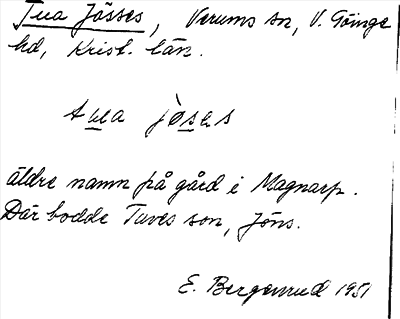 Tua Jösses, Verums sn, V. Göinge
hd, Krist. län.
tua jòses
äldre namn på gård i Magnarp.
Där bodde Tuves son, Jöns.
E. Bergenrud 1951